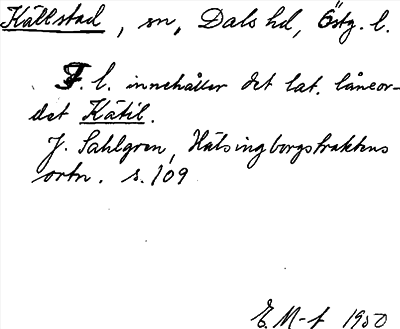 Källstad, sn, Dals hd, Östg. l.
F. l. innehåller det lat. låneor-
det Kätil.
J. Sahlgren, Hälsingborgstraktens
ortn. s. 109
E. M-f 1950